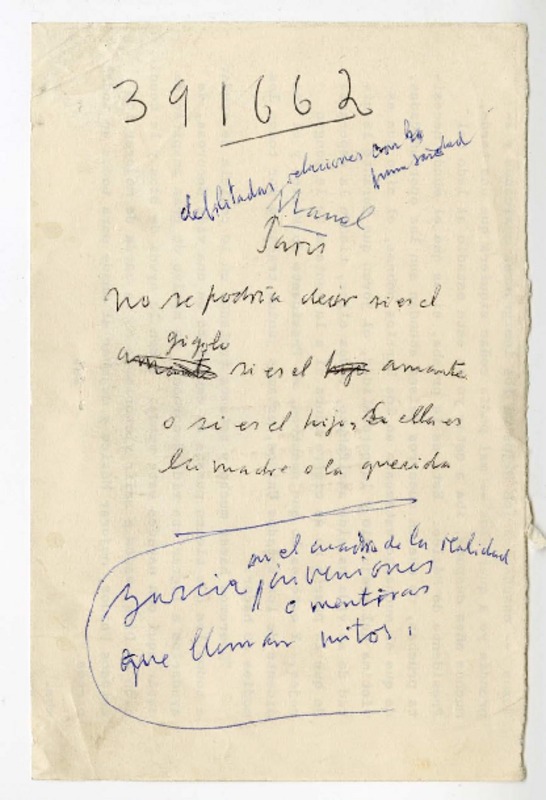 391662
debilitadas relaciones con la
Manal
París
No se podría decir si es el
gigolo
amante si es el hijo amante
o si es el hijo, si ella es
la madre o la querida
en el cuadro de la realidad
invenciones
o mentiras
que llaman mitos.